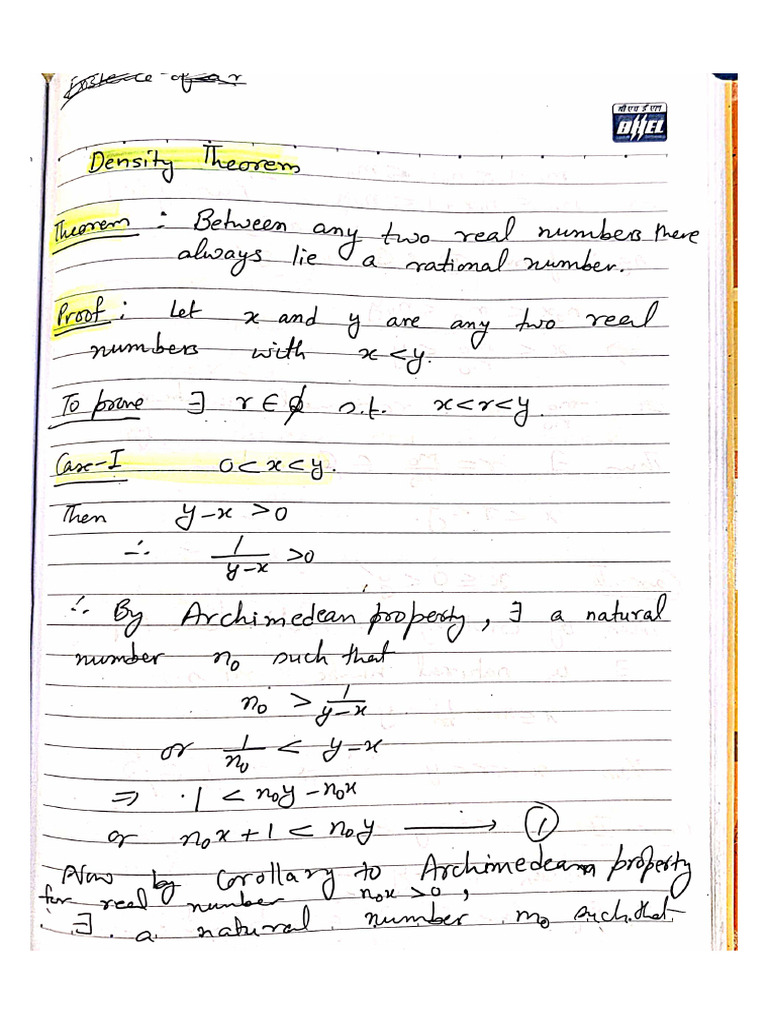 Existence of a r
बी एच ई एल
BHEL
Density Theorem
Theorem : Between any two real numbers there
always lie a rational number.
Proof : Let x and y are any two real
numbers with x < y.
To prove ∃ r ∈ ϕ s.t. x < r < y.
Case-I 0 < x < y.
Then y-x > 0
∴ 1/(y-x) > 0
∴ By Archimedean property, ∃ a natural
number n₀ such that
n₀ > 1/(y-x)
or 1/n₀ < y-x
⇒ 1 < n₀y - n₀x
or n₀x + 1 < n₀y ⟶ ①
Now by Corollary to Archimedean property
for real number n₀x > 0,
∃ a natural number m₀ such that